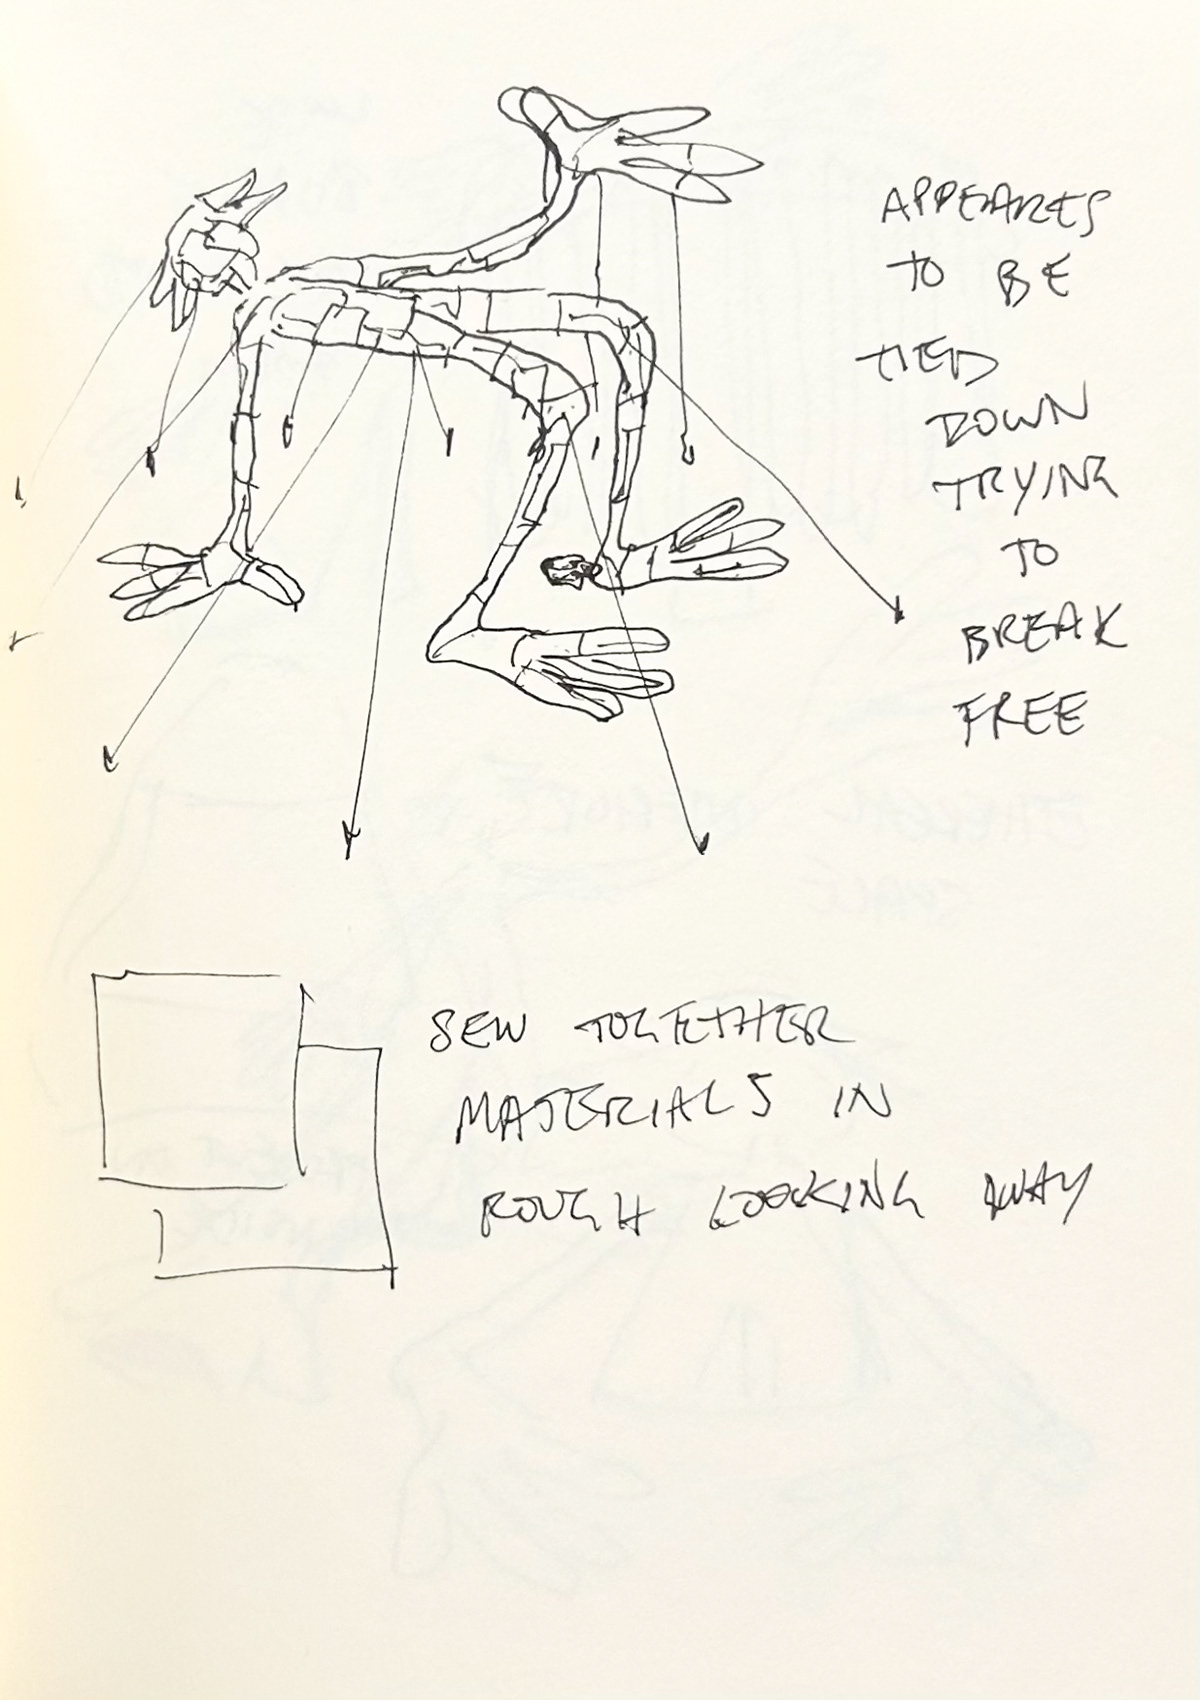 APPEARES
TO BE
TIED
DOWN
TRYING
TO
BREAK
FREE
SEW TOGETHER
MATERIALS IN
ROUGH LOOKING WAY